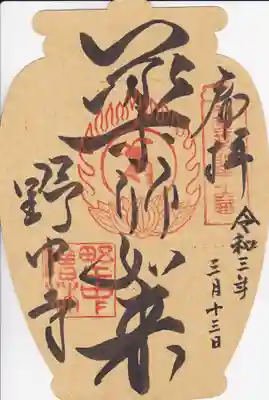 奉拝
令和三年
三月十三日
薬師如来
野中寺